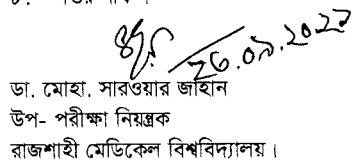 26.09.2022
ডা. মোহা. সারওয়ার জাহান
উপ- পরীক্ষা নিয়ন্ত্রক
রাজশাহী মেডিকেল বিশ্ববিদ্যালয়।